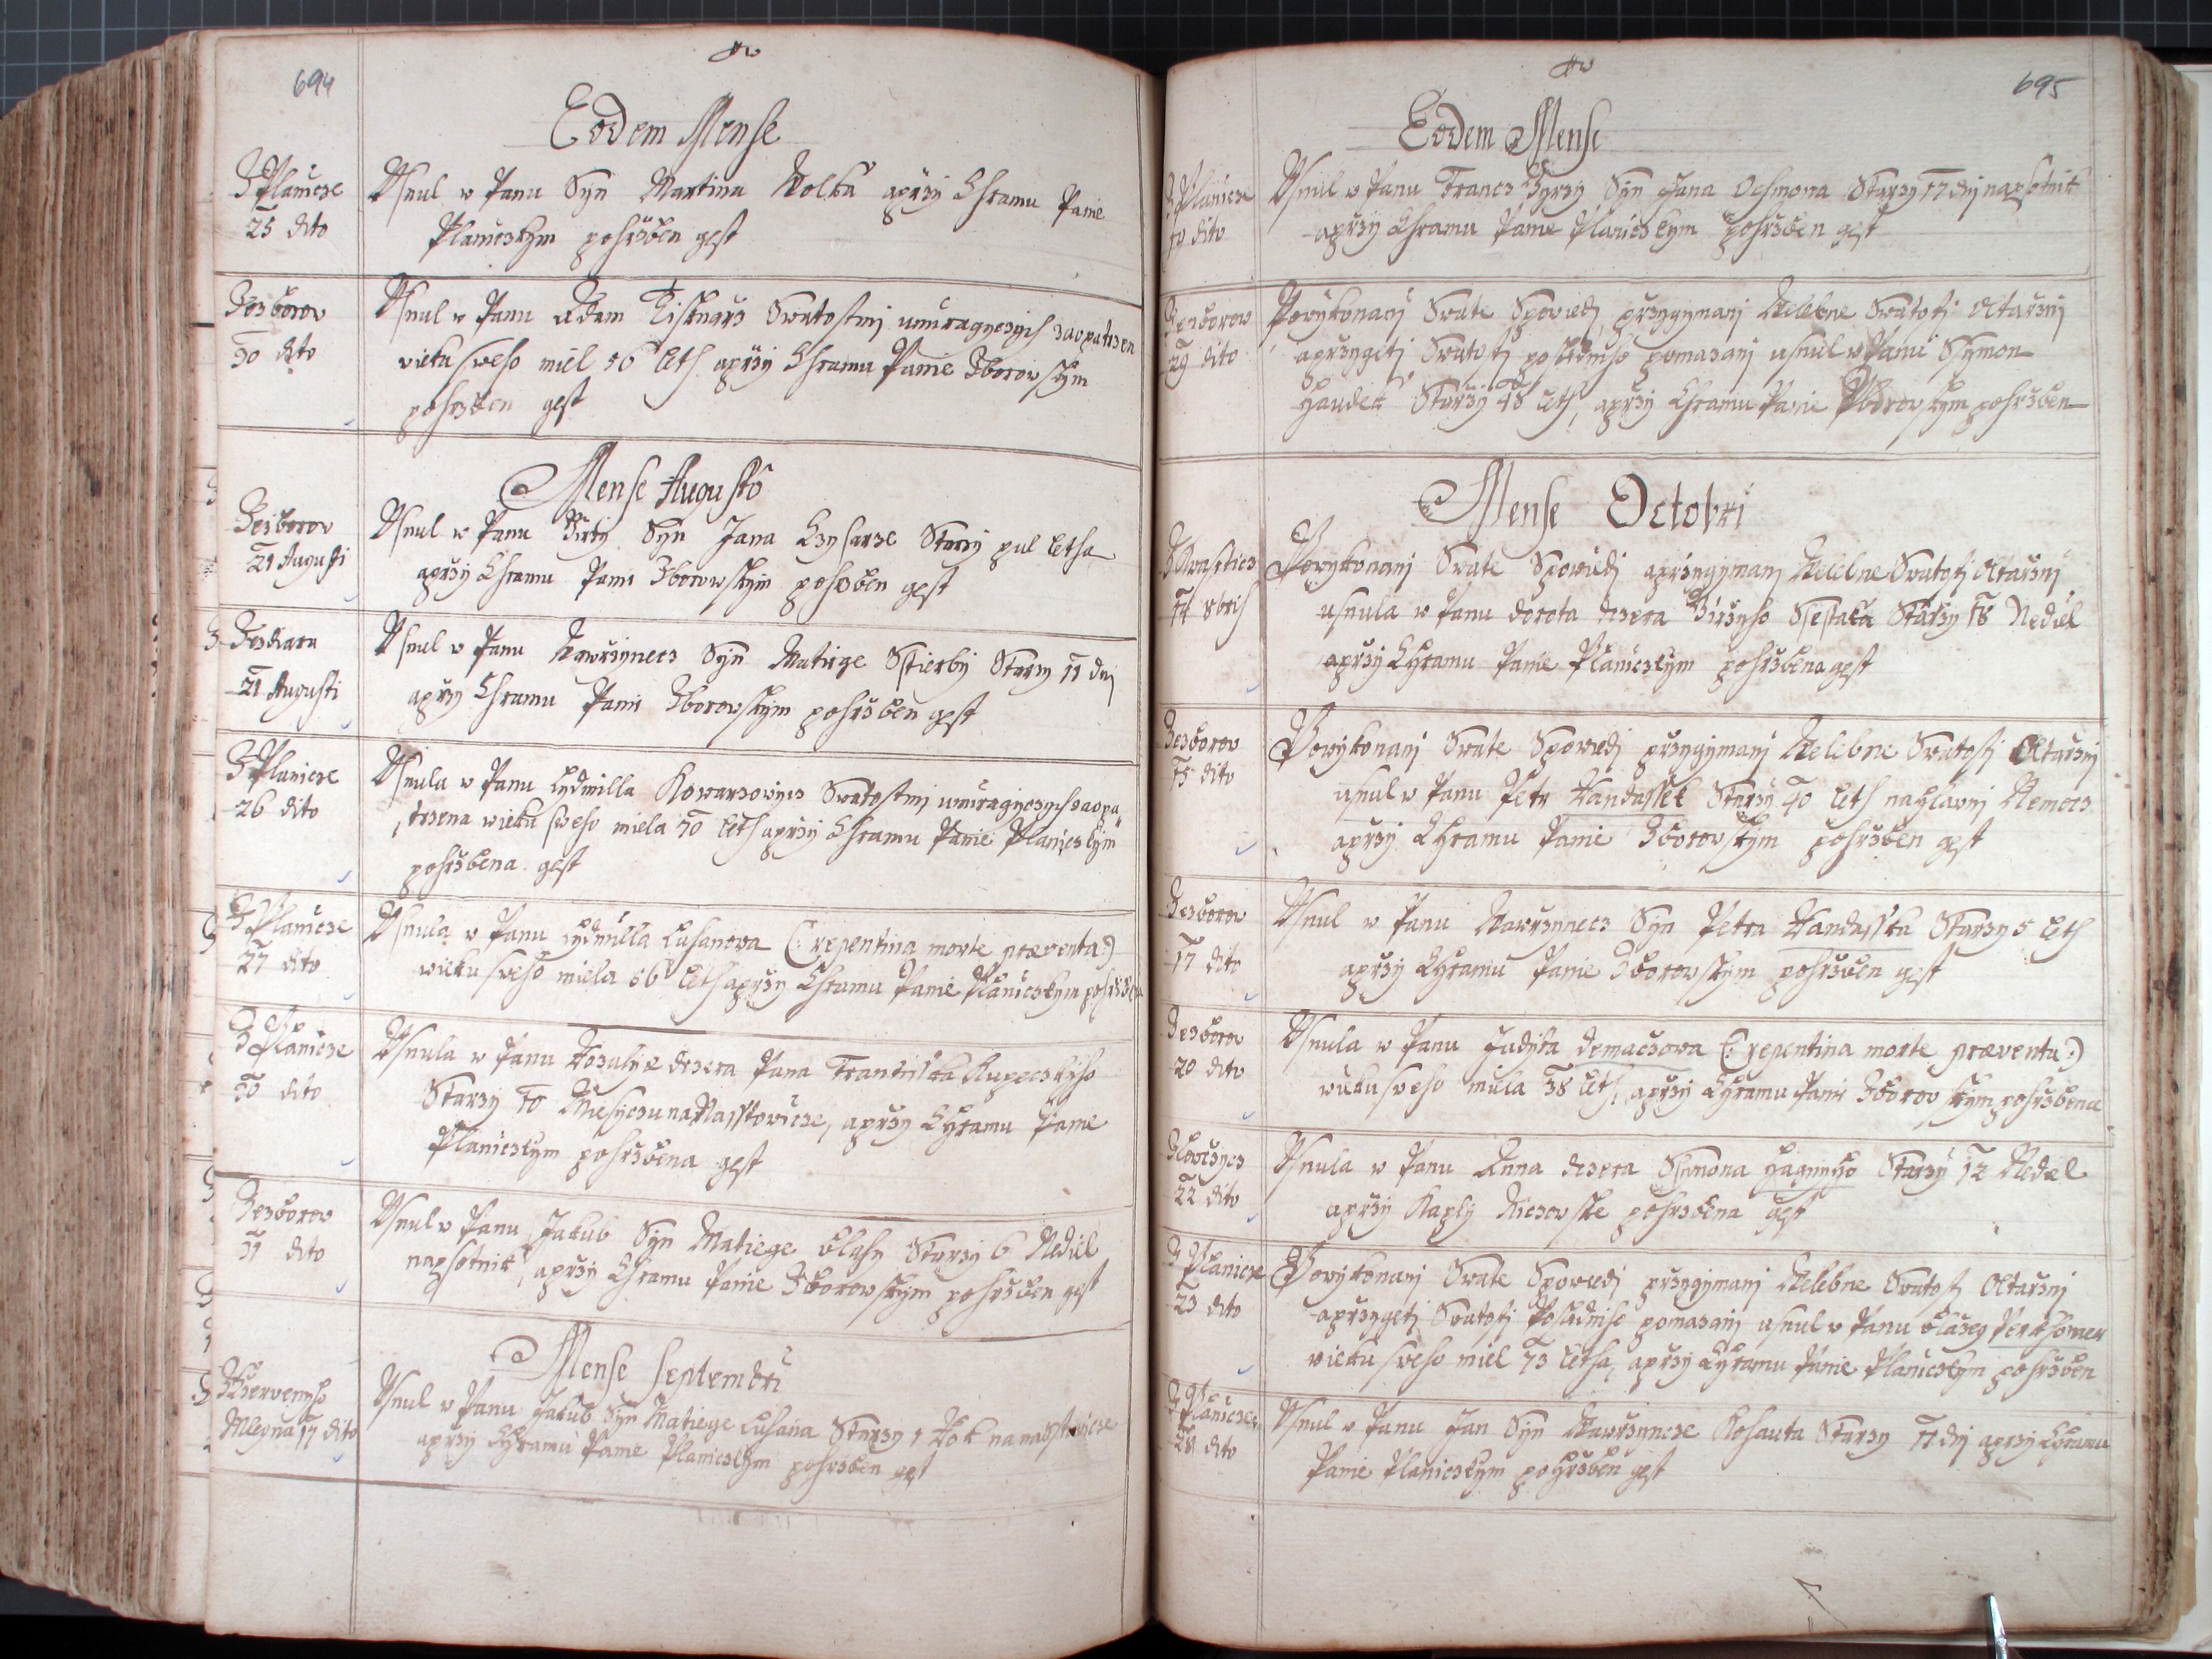 694
Eodem Mense
Z Planicze
25 dito
Usnul w Panu Syn Martina Wolka aprzy Chramu Panie
Planiczkym pohrzben gest
Ze Zborov
30 dito
Usnul w Panu Adam Swatostmj umiragyczych zaopatrzen
wieku sweho miel 56 leth aprzy Chramu Panie Zborowskym
pohrzben gest
Mense Augusto
Ze Zborov
21 Augusti
Usnul w Panu Girzy Syn Jana Starzy pul letha
aprzy Chramu Panie Zborowskym pohrzben gest
21 Augusti
Usnul w Panu Wawrzynecz Syn Matiege Starzy 11 dnj
aprzy Chramu Panie Zborowskym pohrzben gest
Z Planicze
26 dito
Usnula w Panu Lydmilla Kowarzowycz Swatostmj umiragyczych zaopa
trzena wieku sweho miela 70 leth aprzy Chramu Panie Planiczkym
pohrzbena gest
Z Planicze
27 dito
Usnula w Panu Lydmilla Luhanowa (: repentina morte præventa :)
wieku sweho miela 56 leth aprzy Chramu Panie Planiczkym pohrzbena
Z Planicze
30 dito
Usnula w Panu Rozalyje dczera Pana Frantisska Kupeczkyho
Starzy 10 Miesyczu na Nasstowicze, aprzy Chramu Panie
Planiczkym pohrzbena gest
Ze Zborov
31 dito
Usnul w Panu Jakub Syn Matiege Blahy Starzy 6 Nediel
na psotnik, aprzy Chramu Panie Zborowskym pohrzben gest
Mense Septembri
Z Czervenyho
Mleyna 17 dito
Usnul w Panu Jakub Syn Matiege Luhana Starzy 1 Rok
aprzy Chramu Panie Planiczkym pohrzben gest
695
Eodem Mense
Z Planicze
dito
Usnul w Panu Francz Syn Jana Ochmona Starzy 17 dnj na psotnik
aprzy Chramu Panie Planiczkym pohrzben gest
Ze Zborow
29 dito
Powykonanj Swate Spowiedj, przygymanj Welebne Swatosti Oltarznj
aprzygetj Swatosti posledniho pomazanj usnul w Panu Ssymon
Haudek Starzy 48 leth, aprzy Chramu Panie Zborowskym pohrzben
Mense Octobri
14 8bris
Powykonanj Swate Spowiedj aprzygymanj Welebne Swatosti Oltarznj
usnula w Panu dorota dczera Girzyho Ssestaka Starzy 18 Nediel
aprzy Chramu Panie Planiczkym pohrzbena gest
Ze Zborov
15 dito
Powykonanj Swate Spowiedj przygymanj Welebne Swatosti Oltarznj
usnul w Panu Petr Handassek Starzy 40 leth nahlawnj Nemocz
aprzy Chramu Panie Zborowskym pohrzben gest
Ze Zborov
17 dito
Usnul w Panu Wawrzynnecz Syn Petra Handasska Starzy 5 leth
aprzy Chramu Panie Zborowskym pohrzben gest
Ze Zborov
20 dito
Usnula w Panu Judyta demaczowa (: repentina morte præventa :)
wieku sweho miela 38 leth, aprzy Chramu Panie Zborowskym pohrzbena
22 dito
Usnula w Panu Anna dczera Ssymona Starzy 12 Nediel
aprzy Kaply Niczowske pohrzbena gest
Z Planicze
23 dito
Powykonanj Swate Spowiedj przygymanj Welebne Swatosti Oltarznj
aprzygetj Swatosti Posledniho pomazanj usnul w Panu Blazeg
wieku sweho miel 73 letha, aprzy Chramu Panie Planiczkym pohrzben
Z Planicze
28 dito
Usnul w Panu Jan Syn Wawrzynncze Kohauta Starzy 11 dnj aprzy Chramu
Panie Planiczkym pohrzben gest